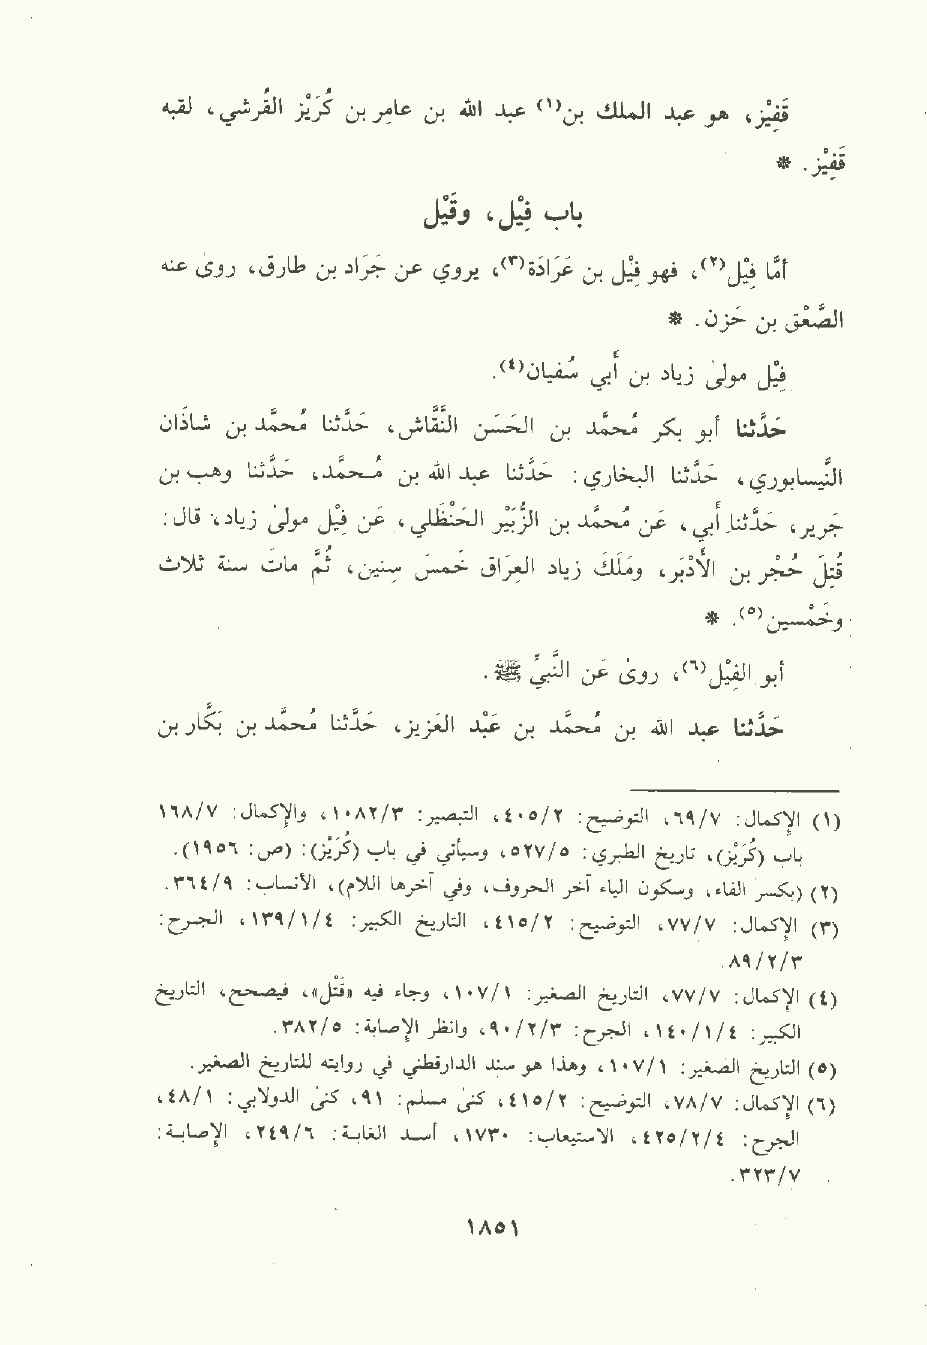 قَفِيْز، هو عبد الملك بن(١) عبد الله بن عامر بن كُرَيْز القُرشي، لقبه
قَفِيْز. *
باب فِيْل، وقَيْل
أمَّا فِيْل(٢)، فهو فِيْل بن عَرَادَة(٣)، يروي عن جَرَاد بن طارق، روىٰ عنه
الصَّعْق بن حَزن. *
فِيْل مولىٰ زياد بن أبي سُفيان(٤).
حَدَّثنا أبو بكر مُحمَّد بن الحَسَن النَّقَّاش، حَدَّثنا مُحمَّد بن شاذَان
النَّيسابوري، حَدَّثنا البخاري: حَدَّثنا عبد الله بن مُحمَّد، حَدَّثنا وهب بن
جَرير، حَدَّثنا أبي، عَن مُحمَّد بن الزُّبَيْر الحَنْظَلي، عَن فِيْل مولىٰ زياد، قال:
قُتِلَ حُجْر بن الأَدْبَر، ومَلَكَ زياد العِرَاق خَمسَ سِنين، ثُمَّ ماتَ سنة ثلاث
وخَمْسين(٥). *
أبو الفِيْل(٦)، روىٰ عَن النَّبيِّ ﷺ.
حَدَّثنا عبد الله بن مُحمَّد بن عَبْد العَزيز، حَدَّثنا مُحمَّد بن بَكَّار بن
(١) الإكمال: ٧/٦٩، التوضيح: ٢/٤٠٥، التبصير: ٣/١٠٨٢، والإكمال: ٧/١٦٨
باب (كُرَيْز)، تاريخ الطبري: ٥/٥٢٧، وسيأتي في باب (كُرَيْز): (ص: ١٩٥٦).
(٢) (بكسر الفاء، وسكون الياء آخر الحروف، وفي آخرها اللام)، الأنساب: ٩/٣٦٤.
(٣) الإكمال: ٧/٧٧، التوضيح: ٢/٤١٥، التاريخ الكبير: ٤/١/١٣٩، الجرح:
٣/٢/٨٩.
(٤) الإكمال: ٧/٧٧، التاريخ الصغير: ١/١٠٧، وجاء فيه «قَتْل»، فيصحح، التاريخ
الكبير: ٤/١/١٤٠، الجرح: ٣/٢/٩٠، وانظر الإصابة: ٥/٣٨٢.
(٥) التاريخ الصغير: ١/١٠٧، وهذا هو سند الدارقطني في روايته للتاريخ الصغير.
(٦) الإكمال: ٧/٧٨، التوضيح: ٢/٤١٥، كنىٰ مسلم: ٩١، كنىٰ الدولابي: ١/٤٨،
الجرح: ٤/٢/٤٢٥، الاستيعاب: ١٧٣٠، أسد الغابة: ٦/٢٤٩، الإصابة:
٧/٣٢٣.
١٨٥١